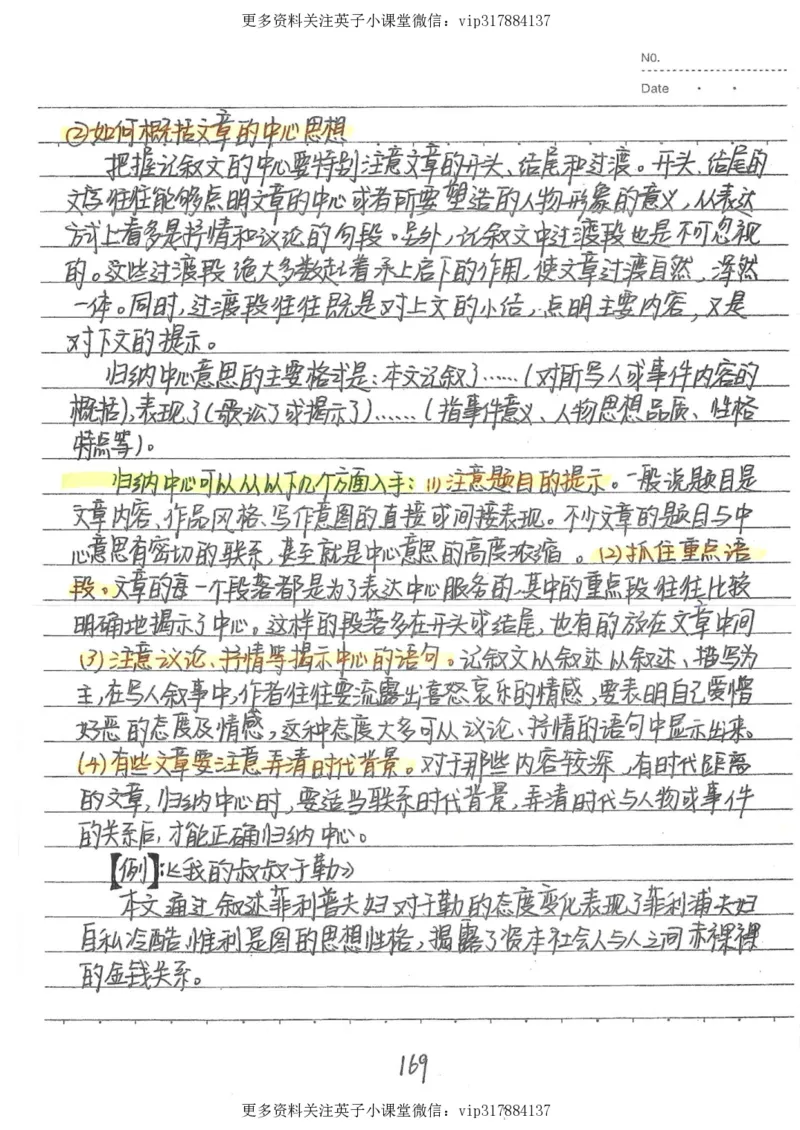 更多资料关注英子小课堂微信：vip317884137
N0.
Date
②如何概括文章的中心思想
把握记叙文的中心要特别注意文章的开头、结尾和过渡。开头、结尾的
文字往往能够点明文章的中心或者所要塑造的人物形象的意义，从表达
方式上看多是抒情和议论的句段。另外，记叙文中过渡段也是不可忽视
的。这些过渡段绝大多数起着承上启下的作用，使文章过渡自然，浑然
一体。同时，过渡段往往既是对上文的小结，点明主要内容，又是
对下文的提示。
归纳中心意思的主要格式是：本文记叙了……（对所写人或事件内容的
概括），表现了（歌讼了或揭示了）……（指事件意义、人物思想品质、性格
特点等）。
归纳中心可以从从以下几个方面入手：(1)注意题目的提示。一般说题目是
文章内容、作品风格、写作意图的直接或间接表现。不少文章的题目与中
心意思有密切的联系，甚至就是中心意思的高度浓缩。(2)抓住重点语
段。文章的每一个段落都是为了表达中心服务的，其中的重点段往往比较
明确地揭示了中心。这样的段落多在开头或结尾，也有的放在文章中间
(3)注意议论、抒情等揭示中心的语句。记叙文从叙述从叙述、描写为
主，在写人叙事中，作者往往要流露出喜怒哀乐的情感，要表明自己爱憎
好恶的态度及情感，这种态度大多可从议论、抒情的语句中显示出来。
(4)有些文章要注意弄清时代背景。对于那些内容较深，有时代距离
的文章，归纳中心时，要适当联系时代背景，弄清时代与人物或事件
的关系后，才能正确归纳中心。
【例】：《我的叔叔于勒》
本文通过叙述菲利普夫妇对于勒的态度变化表现了菲利浦夫妇
自私冷酷，惟利是图的思想性格，揭露了资本社会人与人之间赤裸裸
的金钱关系。
169
更多资料关注英子小课堂微信：vip317884137